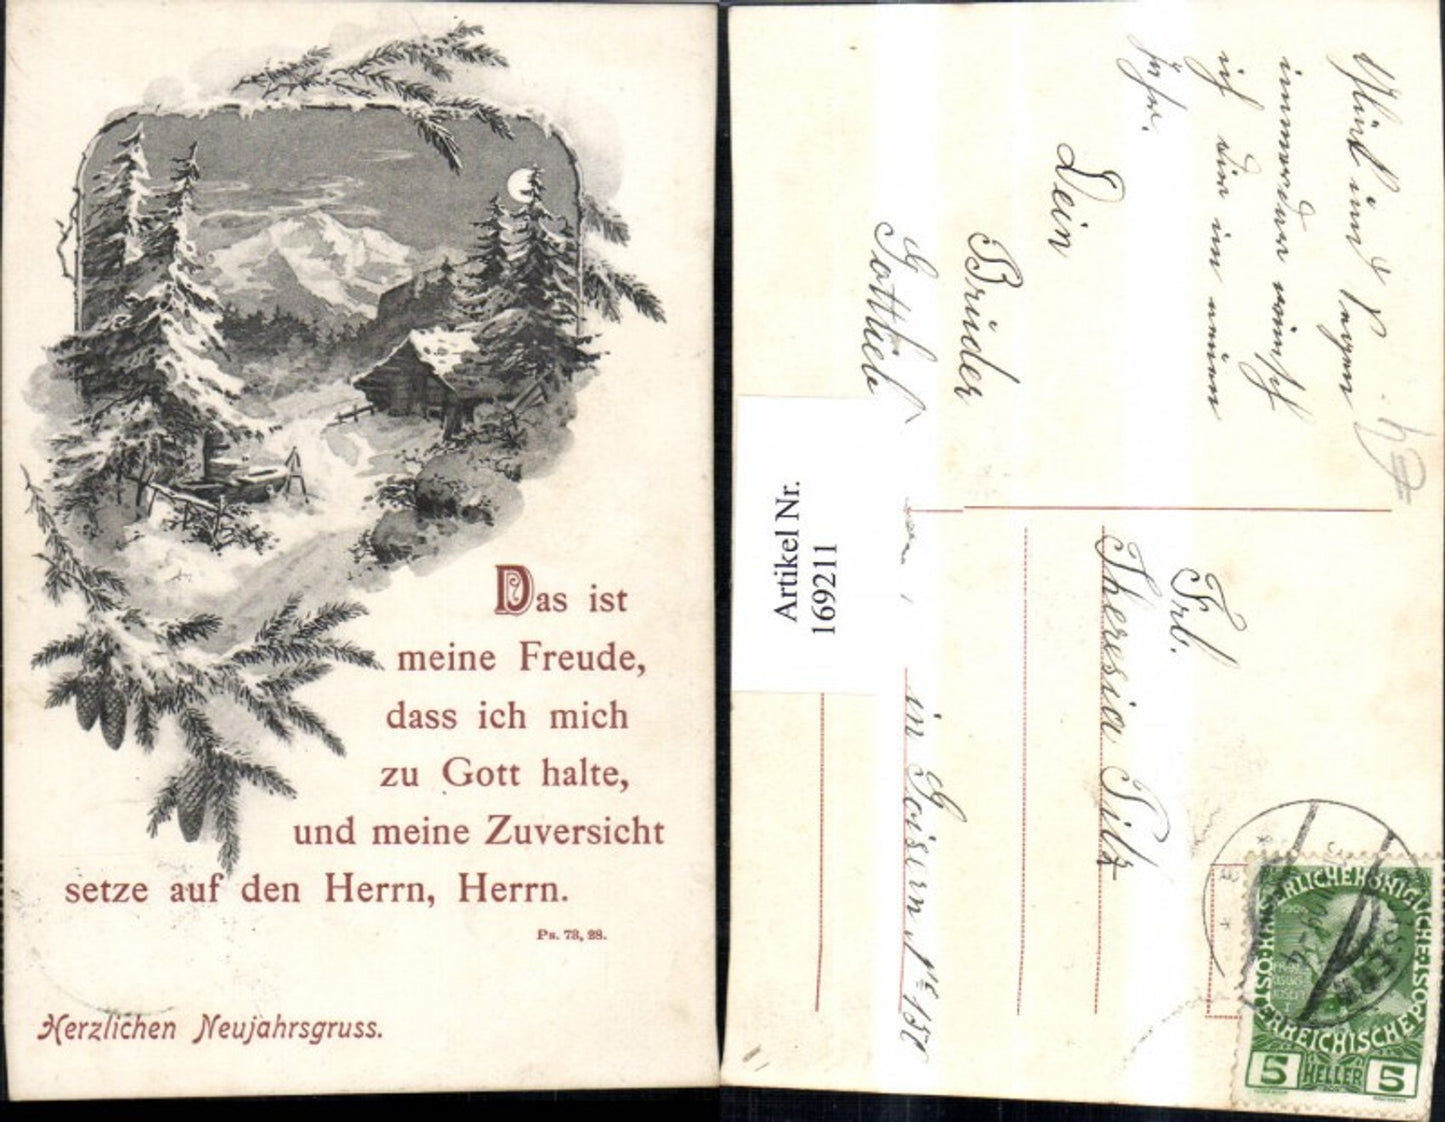 Das ist
meine Freude,
dass ich mich
zu Gott halte,
und meine Zuversicht
setze auf den Herrn, Herrn.
Ps. 73, 28.
Herzlichen Neujahrsgruss.
Glück und Segen
immerdar wünsch
ich dir im neuen
Jahr.
Dein
Brüder
Gottlieb
Artikel Nr.
169211
Frl.
Theresia Pilz
in Goisern
KAISERLICHE KÖNIGLICHE
ÖSTERREICHISCHE POST
5 HELLER 5